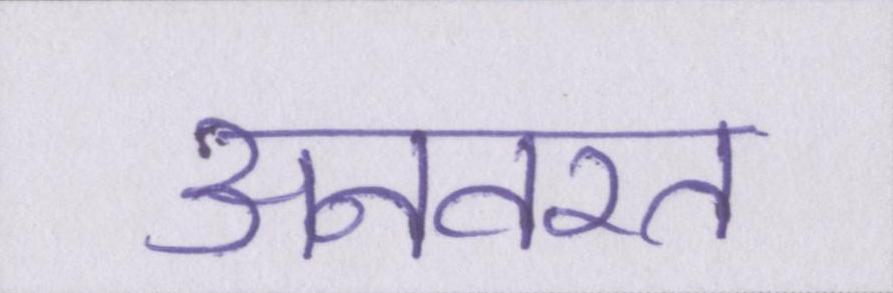 अनवरत